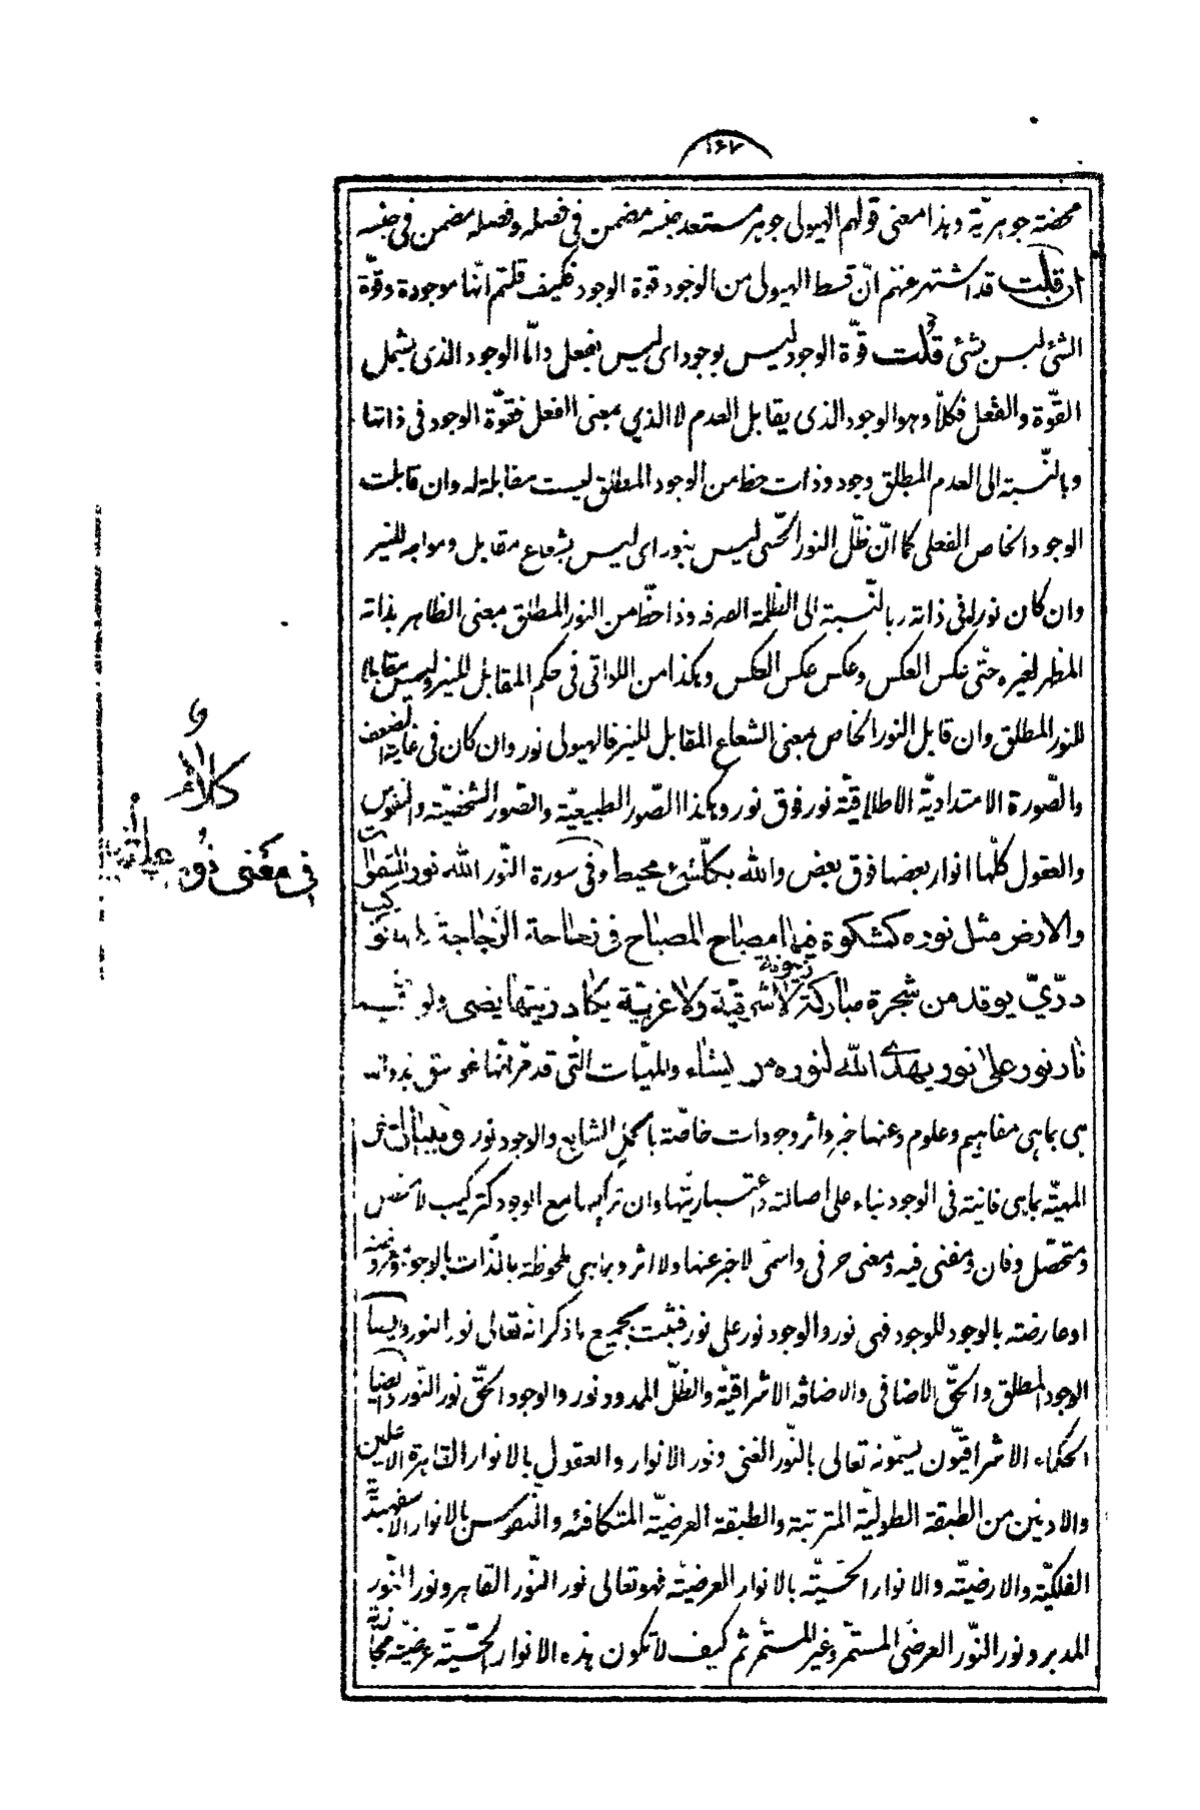 ١٦٧
محضته جوهريّة وهذا معنى قولهم الهيولى جوهر مستعد جنسه مضمن فى فصله وفصله مضمن فى جنسه
ان قلت قد اشتهر عنهم انّ قسط الهيولى من الوجود قوة الوجود فكيف قلتم انّها موجودة وقوّة
الشئ ليس بشئ قلت قوّة الوجود ليس بوجود اى ليس بفعل وامّا الوجود الذى يشمل
القوّة والفعل فكلّا وهو الوجود الذى يقابل العدم لا الذي بمعنى الفعل فقوّة الوجود فى ذاتها
وبالنّسبته الى العدم المطلق وجود وذات حظ من الوجود المطلق ليست مقابلة له وان قابلت
الوجود الخاص الفعلى كما انّ ظلّ النور الحسّى ليس بنور اى ليس بشعاع مقابل ومواجه للنير
وان كان نورا فى ذاته وبالنّسبته الى الظلمة الصرفه وذا حظّ من النور المطلق بمعنى الظاهر بذاته
المظهر لغيره حتّى عكس العكس وعكس عكس العكس وهكذا من اللواتى فى حكم المقابل للنير وليس مقابلا
للنور المطلق وان قابل النور الخاص بمعنى الشعاع المقابل للنير فالهيولى نور وان كان فى غاية الضعف
والصّورة الامتداديّة الاطلاقيّة نور فوق نور وهكذا الصّور الطبيعيّة والصّور الشخصيّته والنفوس
والعقول كلّها انوار بعضها فوق بعض والله بكلّ شئ محيط وفى سورة النّور الله نور السّموات
والارض مثل نوره كمشكوة فيها مصباح المصباح فى زجاجة الزّجاجة كانها كوكب
درّىّ يوقد من شجرة مباركة زيتونة لا شرقيّة ولا غربيّة يكاد زيتها يضى ولو لم تمسسه
نار نور على نور يهدى الله لنوره من يشاء والمهيّات الّتى قد مرّ انّها
هى بماهى مفاهيم وعلوم وعنها خبر واثر وجودات خاصّة بالحمل الشايع والوجود نور
المهيّة بماهى فانيته فى الوجود بناء على اصالته واعتباريّتها وان تركيبها مع الوجود كتركيب لا متحصّل
ومتحصّل وفان ومفنى فيه ومعنى حرفى واسمى لا خبر عنها ولا اثر وبماهى ملحوظة بالذّات بالوجود
او عارضته بالوجود للوجود فهى نور والوجود نور على نور فثبت بجميع ما ذكر انه تعالى نور النور وايضا
الوجود المطلق والحقّ الاضافى والاضافه الاشراقيّة والظّلّ الممدود نور والوجود الحقّ نور النّور وايضا
الحكماء الاشراقيّون يسمّونه تعالى بالنّور الغنى ونور الانوار والعقول بالانوار القاهرة الاعلين
والادنين من الطبقة الطوليّة المترتبة والطبقة العرضيّة المتكافئه والنفوس بالانوار الاسفهبديّة
الفلكيّة والارضيّته والانوار الحسّيّة بالانوار العرضيّة فهو تعالى نور النّور القاهر ونور النّور
المدبر ونور النّور العرضى المستمرّ وغير المستمرّ ثم كيف لا تكون هذه الانوار الحسّيّة عرضيّة مجازية
كلام
فى معنى نور